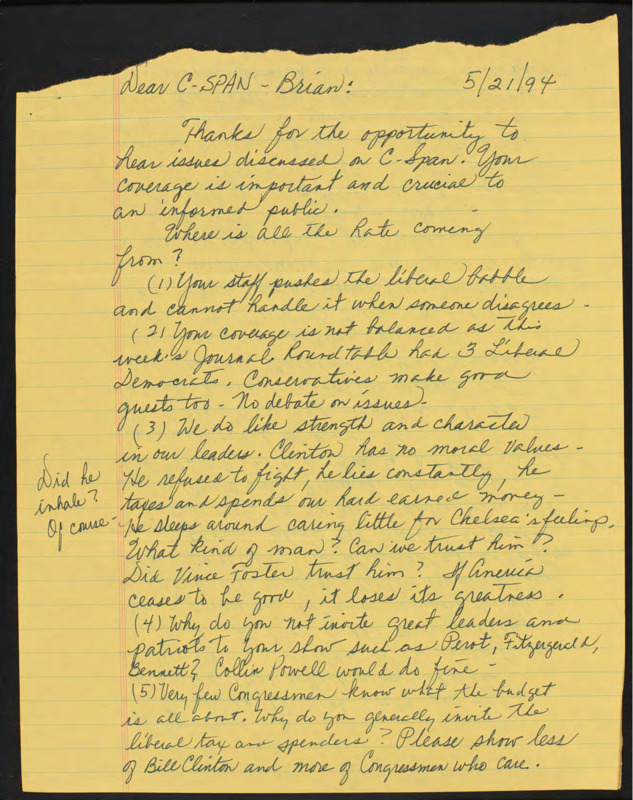 Dear C-SPAN - Brian: 5/21/94
Thanks for the opportunity to
hear issues discussed on C-Span. Your
coverage is important and crucial to
an informed public.
Where is all the hate coming
from?
(1) Your staff pushes the liberal babble
and cannot handle it when someone disagrees -
(2) Your coverage is not balanced as this
week's Journal Roundtable had 3 Liberal
Democrats. Conservatives make good
guests too - No debate on issues).
(3) We do like strength and character
in our leaders. Clinton has no moral values -
He refused to fight, he lies constantly, he
taxes and spends our hard earned money -
He sleeps around caring little for Chelsea's feelings.
What kind of man? Can we trust him?
Did Vince Foster trust him? If America
ceases to be good, it loses its greatness.
(4) Why do you not invite great leaders and
patriots to your show such as Perot, Fitzgergerald,
Bennett? Collin Powell would do fine -
(5) Very few Congressmen know what the budget
is all about. Why do you generally invite the
liberal tax and spenders? Please show less
of Bill Clinton and more of Congressmen who care.
Did he
inhale?
Of course -